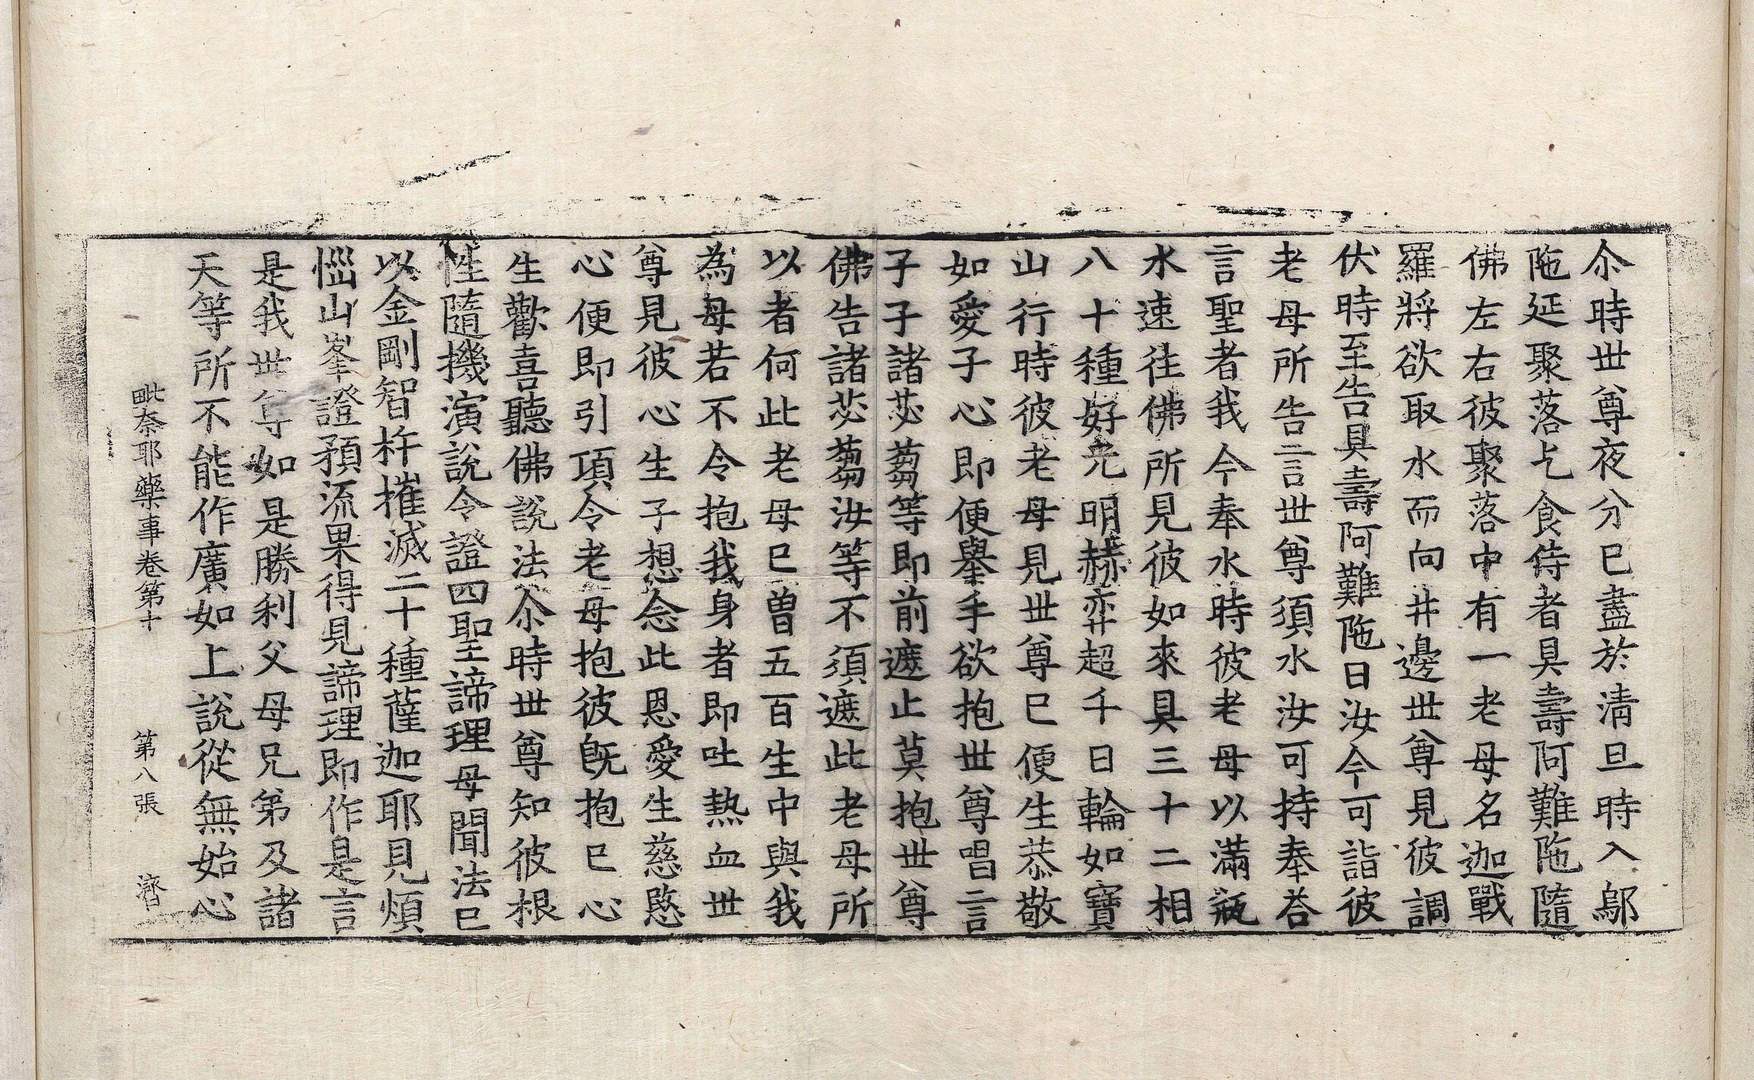 尒時世尊夜分已盡於清旦時入鄔
陁延聚落乞食侍者具壽阿難陁隨
佛左右彼聚落中有一老母名迦戰
羅將欲取水而向井邊世尊見彼調
伏時至告具壽阿難陁曰汝今可詣彼
老母所告言世尊須水汝可持奉荅
言聖者我今奉水時彼老母以滿瓶
水速往佛所見彼如來具三十二相
八十種好光明赫弈超千日輪如寶
山行時彼老母見世尊已便生恭敬
如愛子心即便舉手欲抱世尊唱言
子子諸苾蒭等即前遮止莫抱世尊
佛告諸苾蒭汝等不須遮此老母所
以者何此老母已曽五百生中與我
為母若不令抱我身者即吐熱血世
尊見彼心生子想念此恩愛生慈愍
心便即引項令老母抱彼旣抱已心
生歡喜聽佛說法尒時世尊知彼根
性隨機演說令證四聖諦理母聞法已
以金剛智杵摧滅二十種薩迦耶見煩
惱山峯證預流果得見諦理即作是言
是我世尊如是勝利父母兄弟及諸
天等所不能作廣如上說從無始心
毗奈耶藥事卷第十 第八張 濟